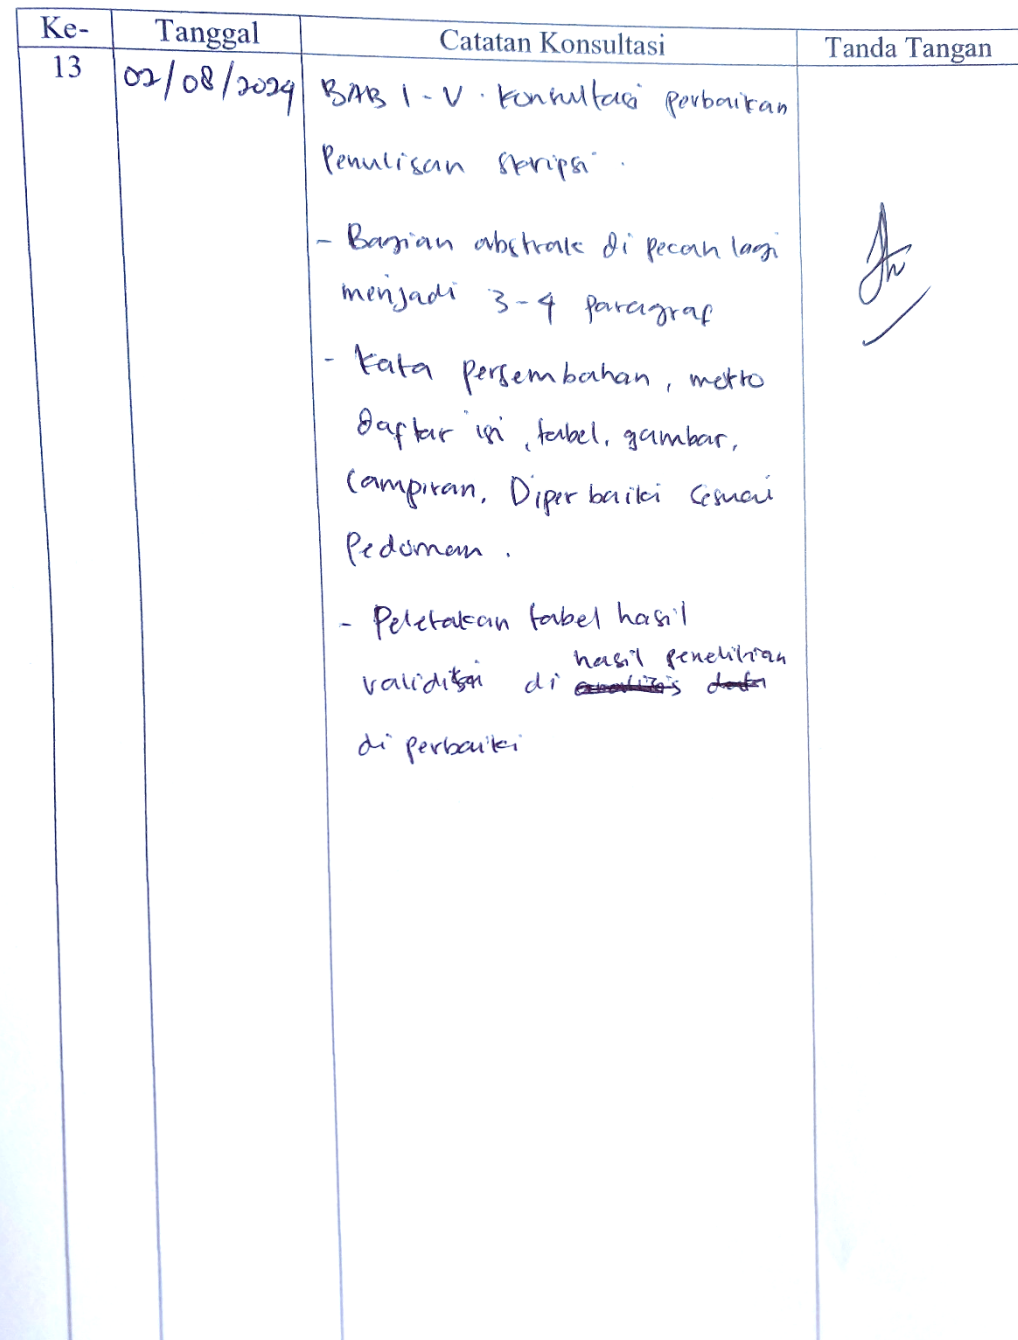 Ke- Tanggal Catatan Konsultasi Tanda Tangan
13 02/08/2024 BAB I - V . Konsultasi perbaikan
Penulisan skripsi .
- Bagian abstrak di pecah lagi
menjadi 3-4 paragraf
- Kata persembahan, motto
Daftar isi, tabel, gambar,
Lampiran, Diperbaiki sesuai
Pedoman .
- Peletakan tabel hasil
hasil penelitian
validitsi di analisis data
di perbaiki